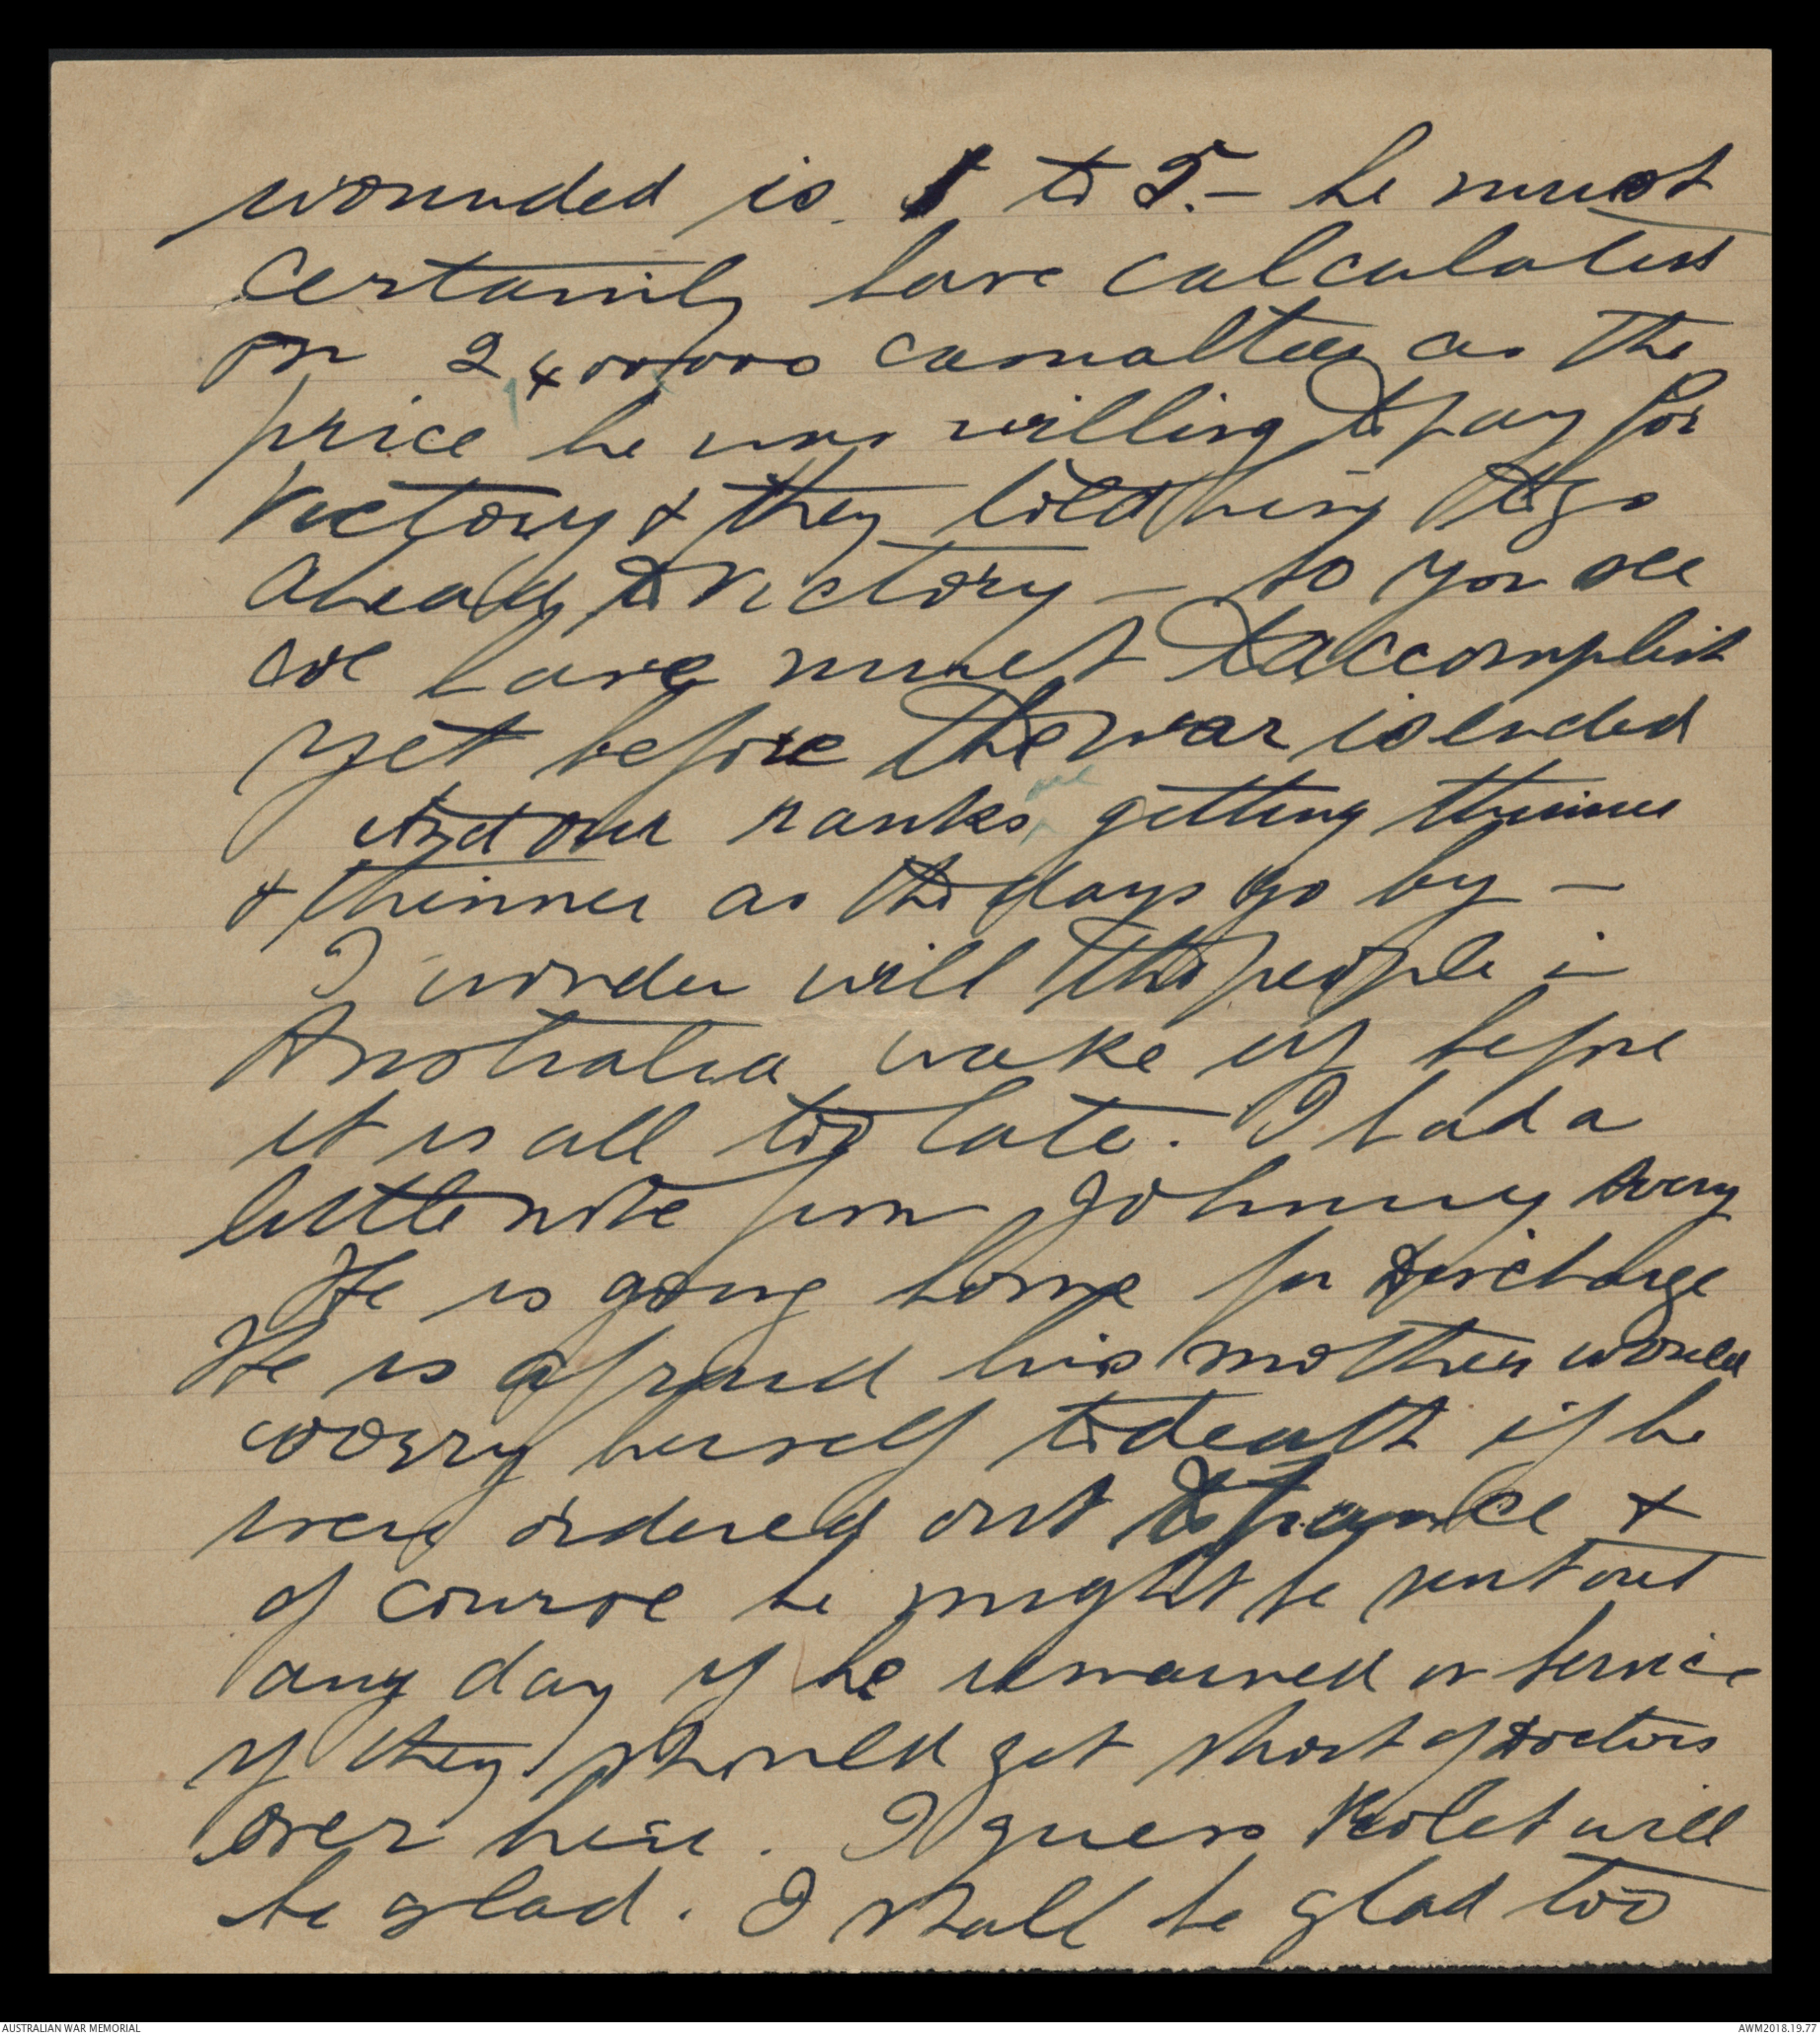 wounded is 1 to 5. – he must
certainly have calculated
on 2,400,000 casualties as the
price he was willing to pay for
Victory & they told him to go
ahead to Victory – so you see
we have much to accomplish
yet before the war is ended
And our ranks are getting thinner
& thinner as the days go by –
I wonder will the people in
Australia wake up before
it is all too late. I had a
little note from Johnny
He is going home for Discharge
He is afraid his mother would
worry herself to death if he
were ordered out to France &
of course he might be sent out
any day if he remained on service
if they should get short of Doctors
over here. I guess Violet will
be glad. I shall be glad too
AUSTRALIAN WAR MEMORIAL
AWM2018.19.77